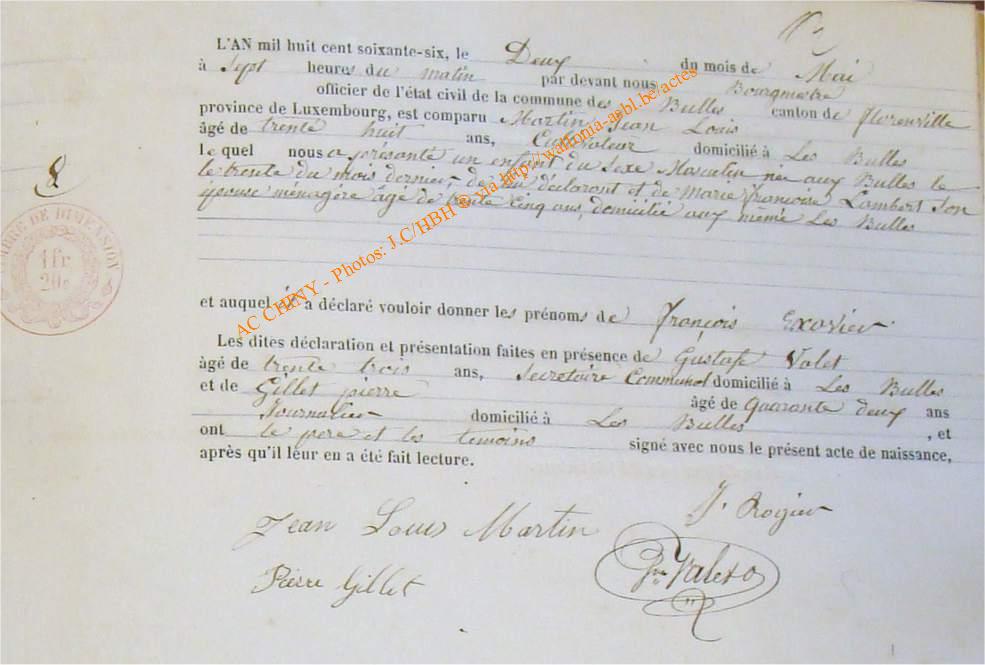 L'AN mil huit cent soixante-six, le Deux du mois de Mai
à Sept heures du matin par devant nous Bourgmestre
officier de l'état civil de la commune des Bulles canton de florenville
province de Luxembourg, est comparu Martin Jean Louis
âgé de trente huit ans, Cultivateur domicilié à Les Bulles
le quel nous a présanté un enfant du Sexe Masculin née aux Bulles le
trente du mois dernier, de lui déclarant et de marie françoise Lambert Son
épouse ménagère âgé de trente cinq ans, domicilié aux meme Les Bulles
et auquel il a déclaré vouloir donner les prénoms de françois Exavier
Les dites déclaration et présentation faites en présence de Gustafe Valet
âgé de trente trois ans, Secretaire Communal domicilié à Les Bulles
et de Gillet pierre âgé de Quarante deux ans
Journalier domicilié à Les Bulles , et
ont le pere et les temoins signé avec nous le présent acte de naissance,
après qu'il leur en a été fait lecture.
8
TIMBRE DE DIMENSION
1 fr
20c
AC CHINY - Photos: J.C/HBH © via http://wallonia-asbl.be/actes
Jean Louis Martin
J. Rogier
Pierre Gillet